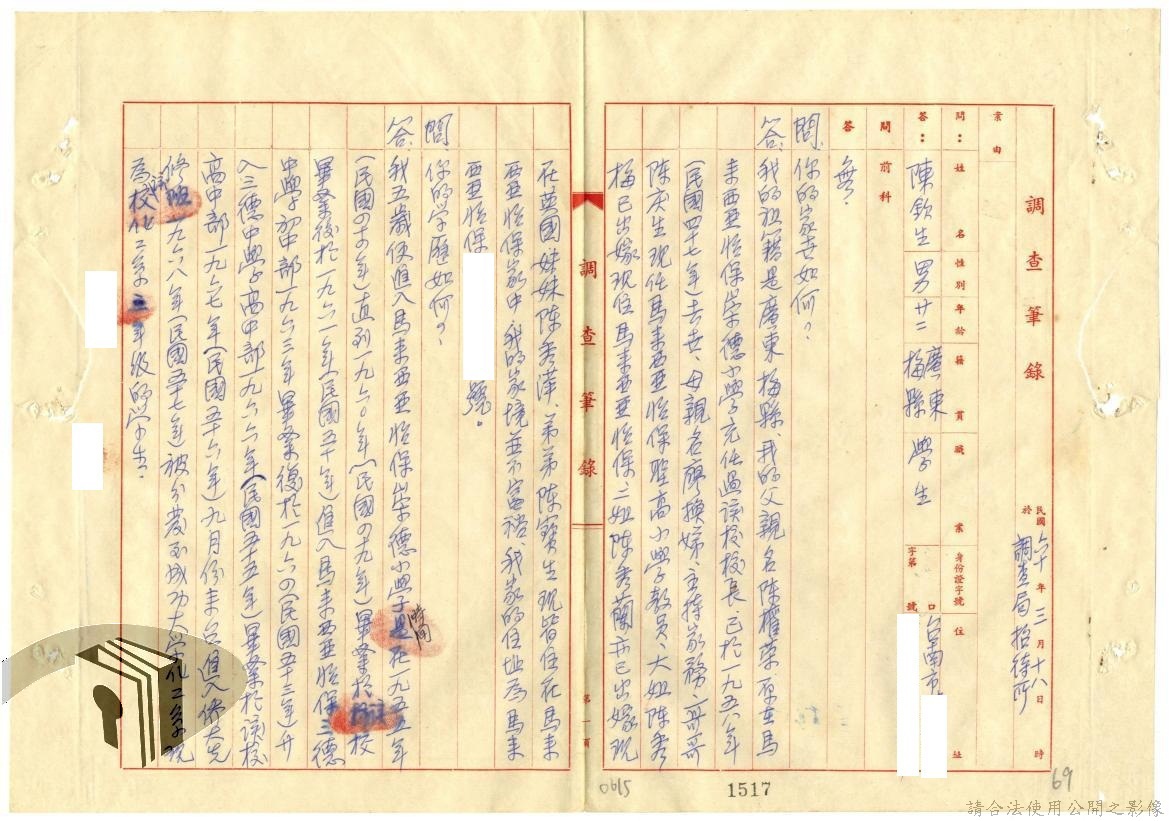 調查筆錄
民國六十年三月十八日 時
於調查局招待所
案由
問：姓名 性別 年齡 籍貫 職業 身份證字號 住址
答：陳欽生 男 廿二 廣東梅縣 學生 字第 號 台南市
問 前科
答 無。
問 你的家世如何？
答 我的祖籍是廣東梅縣、我的父親名陳權榮、原在馬
來西亞怡保崇德小學充任過該校校長、已於一九五八年
(民國四十七年)去世、母親名廖換娣、主持家務、哥哥
陳本生現任馬來西亞怡保聖高小學教員、大姐陳秀
梅已出嫁現住馬來西亞怡保、二姐陳秀蘭亦已出嫁現
第一頁
調查筆錄
在英國妹妹陳秀萍、弟弟陳寶生現皆住在馬來
西亞怡保家中、我的家境並不富裕、我家的住址為馬來
西亞怡保 號。
問 你的學歷如何？
答 我五歲便進入馬來西亞怡保崇德小學時間是在一九五五年
(民國四十四年)直到一九六〇年(民國四十九年)畢業於該校
畢業後於一九六一年(民國五十年)進入馬來西亞怡保三德
中學初中部一九六三年畢業後於一九六四(民國五十三年)升
入三德中學高中部一九六六年(民國五十五年)畢業於該校
高中部一九六七年(民國五十六年)九月份來台進入僑大先
修班一九六八年(民國五十七年)被分發至成功大學化工系現
為該校化工系三年級的學生。
0615
1517
69
請合法使用公開之影像